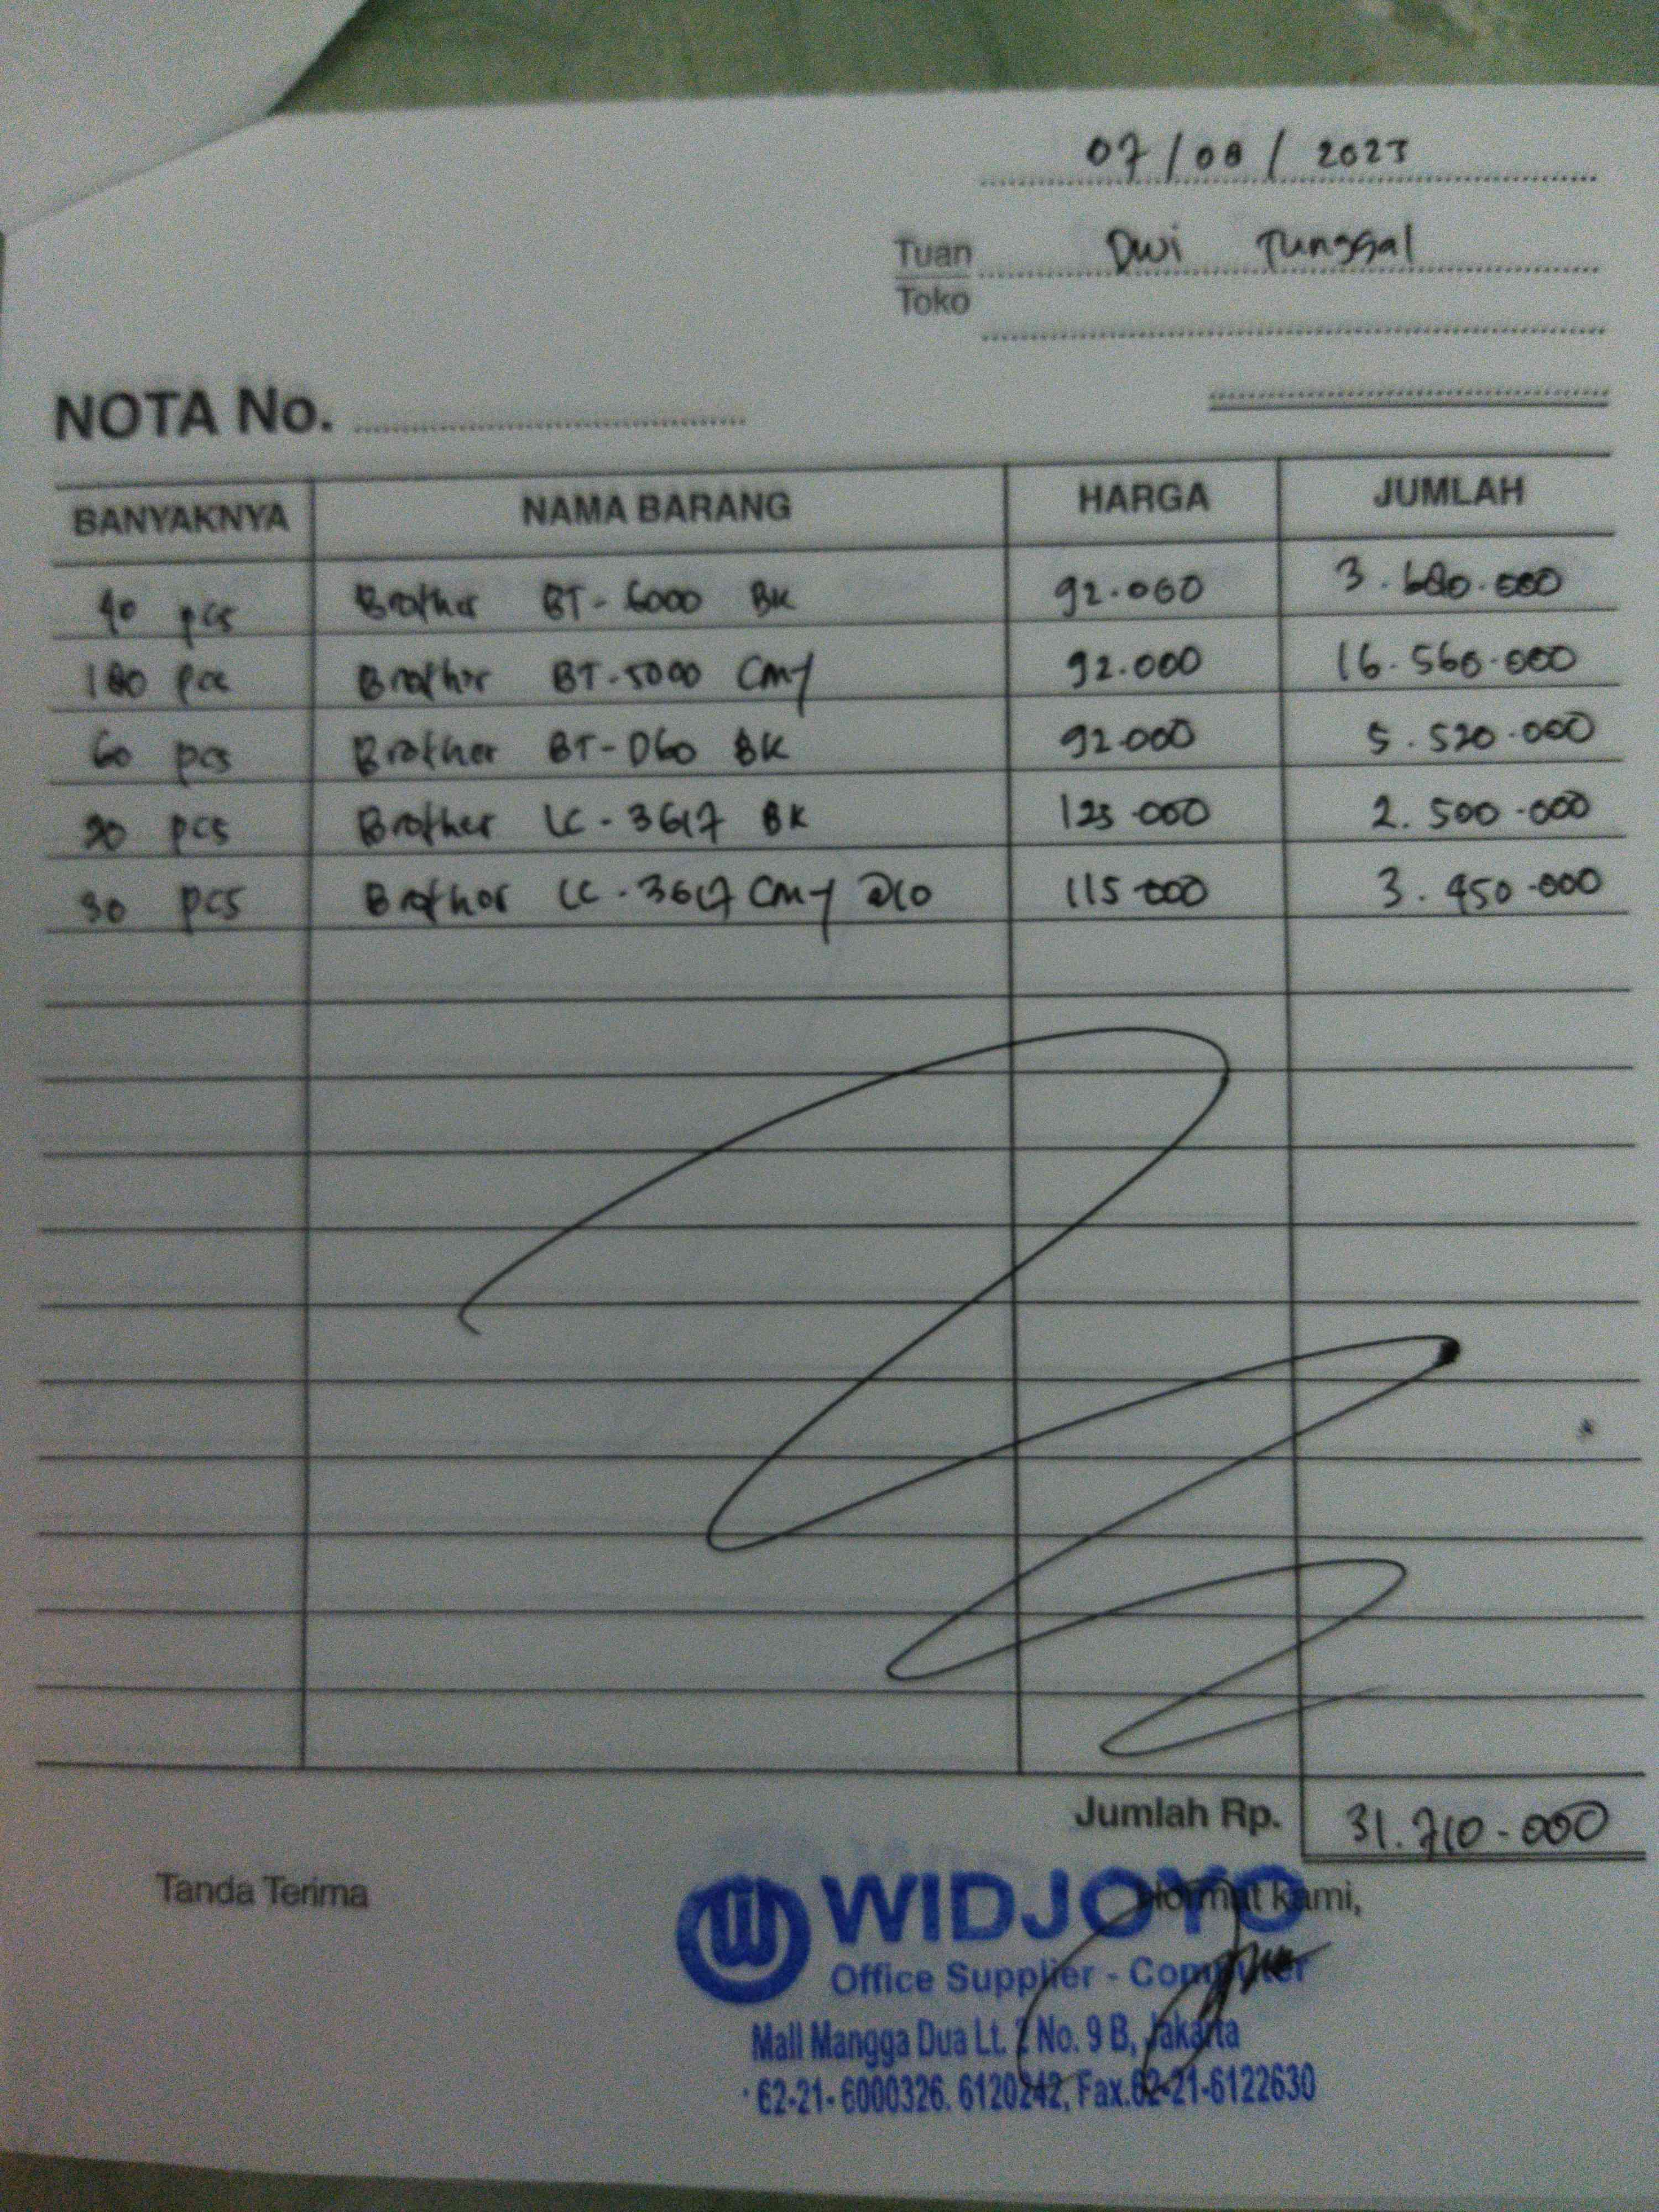 07 / 08 / 2023
Tuan Dwi Tunggal
Toko
NOTA No.
BANYAKNYA NAMA BARANG HARGA JUMLAH
40 pcs Brother BT-6000 BK 92.000 3.680.000
180 pcs Brother BT-5000 CMY 92.000 16.560.000
60 pcs Brother BT-D60 BK 92.000 5.520.000
20 pcs Brother LC-3617 BK 125.000 2.500.000
30 pcs Brother LC-3617 CMY @10 115.000 3.450.000
Jumlah Rp. 31.710.000
Tanda Terima Hormat kami,
WIDJOYO
Office Supplier - Computer
Mall Mangga Dua Lt. 2 No. 9 B, Jakarta
62-21-6000326. 6120242, Fax.62-21-6122630